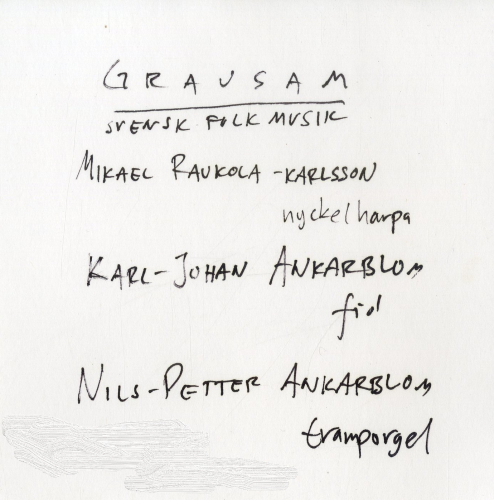 GRAUSAM
SVENSK FOLKMUSIK
MIKAEL RAUKOLA-KARLSSON
nyckelharpa
KARL-JOHAN ANKARBLOM
fiol
NILS-PETTER ANKARBLOM
tramporgel